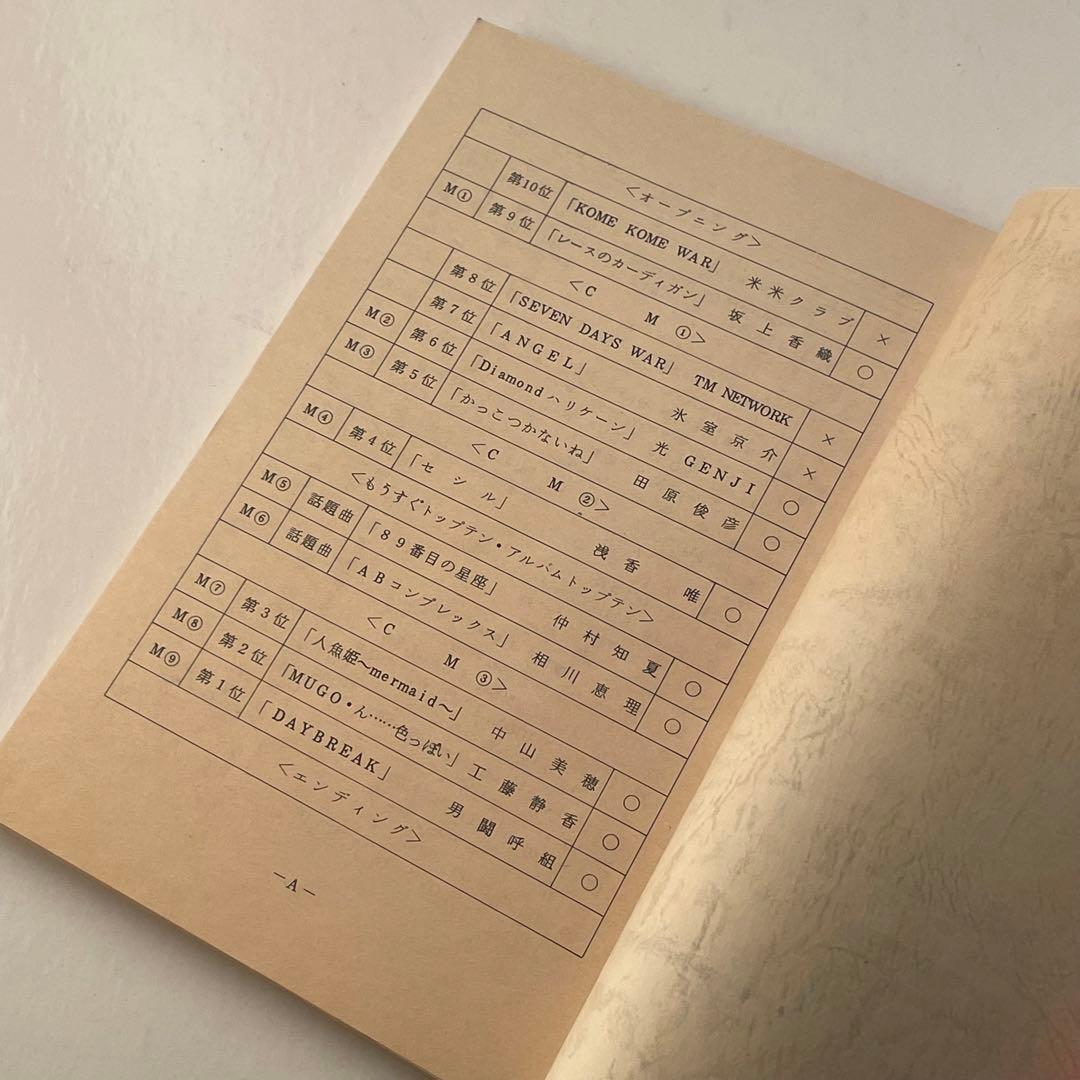 <オープニング>
第10位 「KOME KOME WAR」 米米クラブ ×
M① 第9位 「レースのカーディガン」 坂上香織 ○
<C M ①>
第8位 「SEVEN DAYS WAR」 TM NETWORK ×
第7位 「ANGEL」 氷室京介 ×
M② 第6位 「Diamondハリケーン」 光GENJI ○
M③ 第5位 「かっこつかないね」 田原俊彦 ○
<C M ②>
M④ 第4位 「セシル」 浅香唯 ○
<もうすぐトップテン・アルバムトップテン>
M⑤ 話題曲 「89番目の星座」 仲村知夏 ○
M⑥ 話題曲 「ABコンプレックス」 相川恵理 ○
<C M ③>
M⑦ 第3位 「人魚姫〜mermaid〜」 中山美穂 ○
M⑧ 第2位 「MUGO・ん……色っぽい」 工藤静香 ○
M⑨ 第1位 「DAYBREAK」 男闘呼組 ○
<エンディング>
－A－